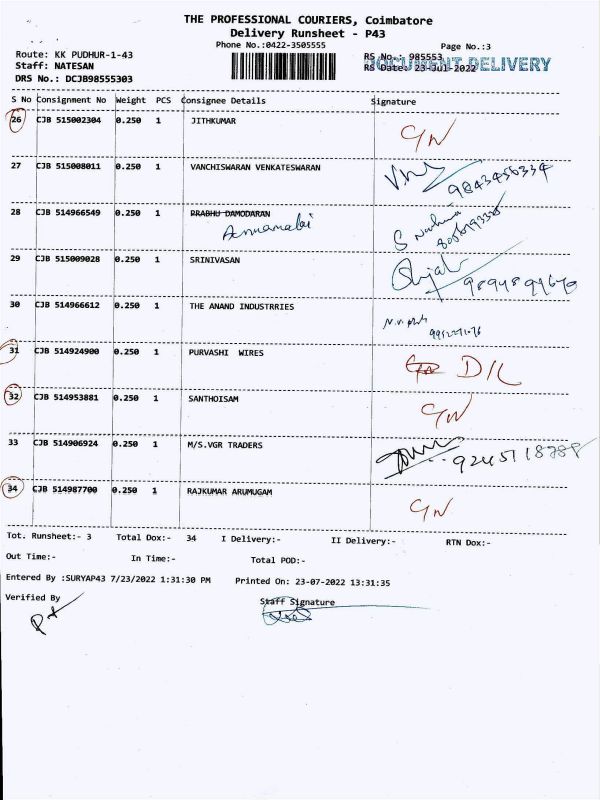 THE PROFESSIONAL COURIERS, Coimbatore
Delivery Runsheet - P43
Phone No.:0422-3505555
Page No.:3
Route: KK PUDHUR-1-43
RS No.: 985553
Staff: NATESAN
RS Date: 23-Jul-2022
DOCUMENT DELIVERY
DRS No.: DCJB98555303
S No Consignment No Weight PCS Consignee Details Signature
26 CJB 515002304 0.250 1 JITHKUMAR
27 CJB 515008011 0.250 1 VANCHISWARAN VENKATESWARAN
9843456334
28 CJB 514966549 0.250 1 PRABHU DAMODARAN
Annamalai
29 CJB 515009028 0.250 1 SRINIVASAN
30 CJB 514966612 0.250 1 THE ANAND INDUSTRRIES
31 CJB 514924900 0.250 1 PURVASHI WIRES
D/L
32 CJB 514953881 0.250 1 SANTHOISAM
33 CJB 514906924 0.250 1 M/S.VGR TRADERS
34 CJB 514987700 0.250 1 RAJKUMAR ARUMUGAM
Tot. Runsheet:- 3 Total Dox:- 34 I Delivery:- II Delivery:- RTN Dox:-
Out Time:- In Time:- Total POD:-
Entered By :SURYAP43 7/23/2022 1:31:30 PM Printed On: 23-07-2022 13:31:35
Verified By Staff Signature